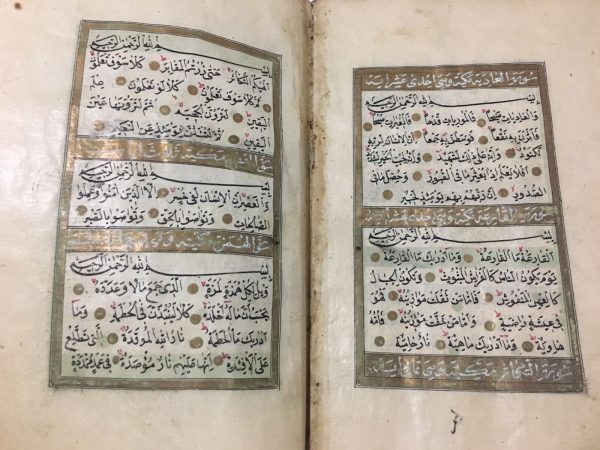 سورة العادية مكية وهي احدى عشر اية
بسم الله الرحمن الرحيم
وَالْعَادِيَاتِ ضَبْحًا فَالْمُورِيَاتِ قَدْحًا فَالْمُغِيرَاتِ صُبْحًا
فَأَثَرْنَ بِهِ نَقْعًا فَوَسَطْنَ بِهِ جَمْعًا إِنَّ الْإِنْسَانَ لِرَبِّهِ
لَكَنُودٌ وَإِنَّهُ عَلَى ذَلِكَ لَشَهِيدٌ وَإِنَّهُ لِحُبِّ الْخَيْرِ لَشَدِيدٌ
أَفَلَا يَعْلَمُ إِذَا بُعْثِرَ مَا فِي الْقُبُورِ وَحُصِّلَ مَا فِي
الصُّدُورِ إِنَّ رَبَّهُمْ بِهِمْ يَوْمَئِذٍ لَخَبِيرٌ
سورة القارعة مكية وهي عشر اية
بسم الله الرحمن الرحيم
اَلْقَارِعَةُ مَا الْقَارِعَةُ وَمَا أَدْرٰيكَ مَا الْقَارِعَةُ
يَوْمَ يَكُونُ النَّاسُ كَالْفَرَاشِ الْمَبْثُوثِ وَتَكُونُ الْجِبَالُ
كَالْعِهْنِ الْمَنْفُوشِ فَأَمَّا مَنْ ثَقُلَتْ مَوَازِينُهُ فَهُوَ
فِي عِيشَةٍ رَاضِيَةٍ وَأَمَّا مَنْ خَفَّتْ مَوَازِينُهُ فَأُمُّهُ
هَاوِيَةٌ وَمَا أَدْرٰيكَ مَاهِيَهْ نَارٌ حَامِيَةٌ
سورة التكاثر مكية وهي ثماني اية
بسم الله الرحمن الرحيم
أَلْهٰيكُمُ التَّكَاثُرُ حَتَّى زُرْتُمُ الْمَقَابِرَ كَلَّا سَوْفَ تَعْلَمُونَ
ثُمَّ كَلَّا سَوْفَ تَعْلَمُونَ كَلَّا لَوْ تَعْلَمُونَ عِلْمَ
الْيَقِينِ لَتَرَوُنَّ الْجَحِيمَ ثُمَّ لَتَرَوُنَّهَا عَيْنَ
الْيَقِينِ ثُمَّ لَتُسْئَلُنَّ يَوْمَئِذٍ عَنِ النَّعِيمِ
سورة العصر مكية ثلاث اية
بسم الله الرحمن الرحيم
وَالْعَصْرِ إِنَّ الْإِنْسَانَ لَفِي خُسْرٍ إِلَّا الَّذِينَ آمَنُوا وَعَمِلُوا
الصَّالِحَاتِ وَتَوَاصَوْا بِالْحَقِّ وَتَوَاصَوْا بِالصَّبْرِ
سورة الهمزة مكية
بسم الله الرحمن الرحيم
وَيْلٌ لِكُلِّ هُمَزَةٍ لُمَزَةٍ الَّذِي جَمَعَ مَالًا وَعَدَّدَهُ
يَحْسَبُ أَنَّ مَالَهُ أَخْلَدَهُ كَلَّا لَيُنْبَذَنَّ فِي الْحُطَمَةِ وَمَا
أَدْرٰيكَ مَا الْحُطَمَةُ نَارُ اللهِ الْمُوقَدَةُ الَّتِي تَطَّلِعُ
عَلَى الْأَفْئِدَةِ إِنَّهَا عَلَيْهِمْ نَارٌ مُؤْصَدَةٌ فِي عَمَدٍ مُمَدَّدَةٍ